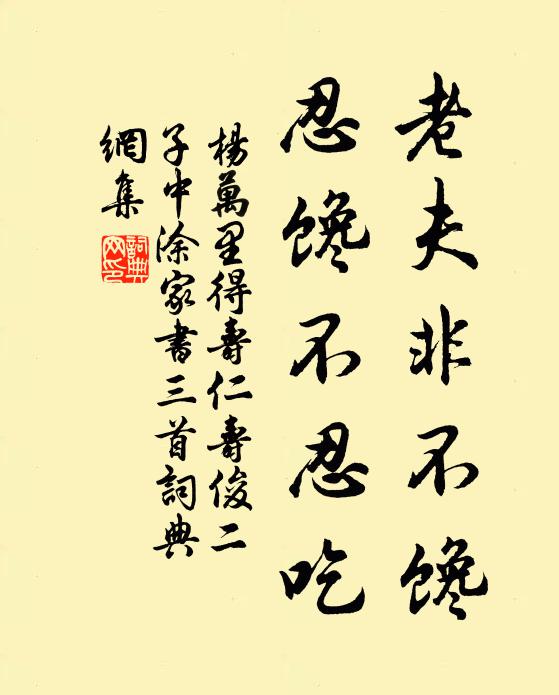 老夫非不馋
忍馋不忍吃
楊萬里得壽仁壽俊二
子中涂家書三首詞典
網集
詞典網印